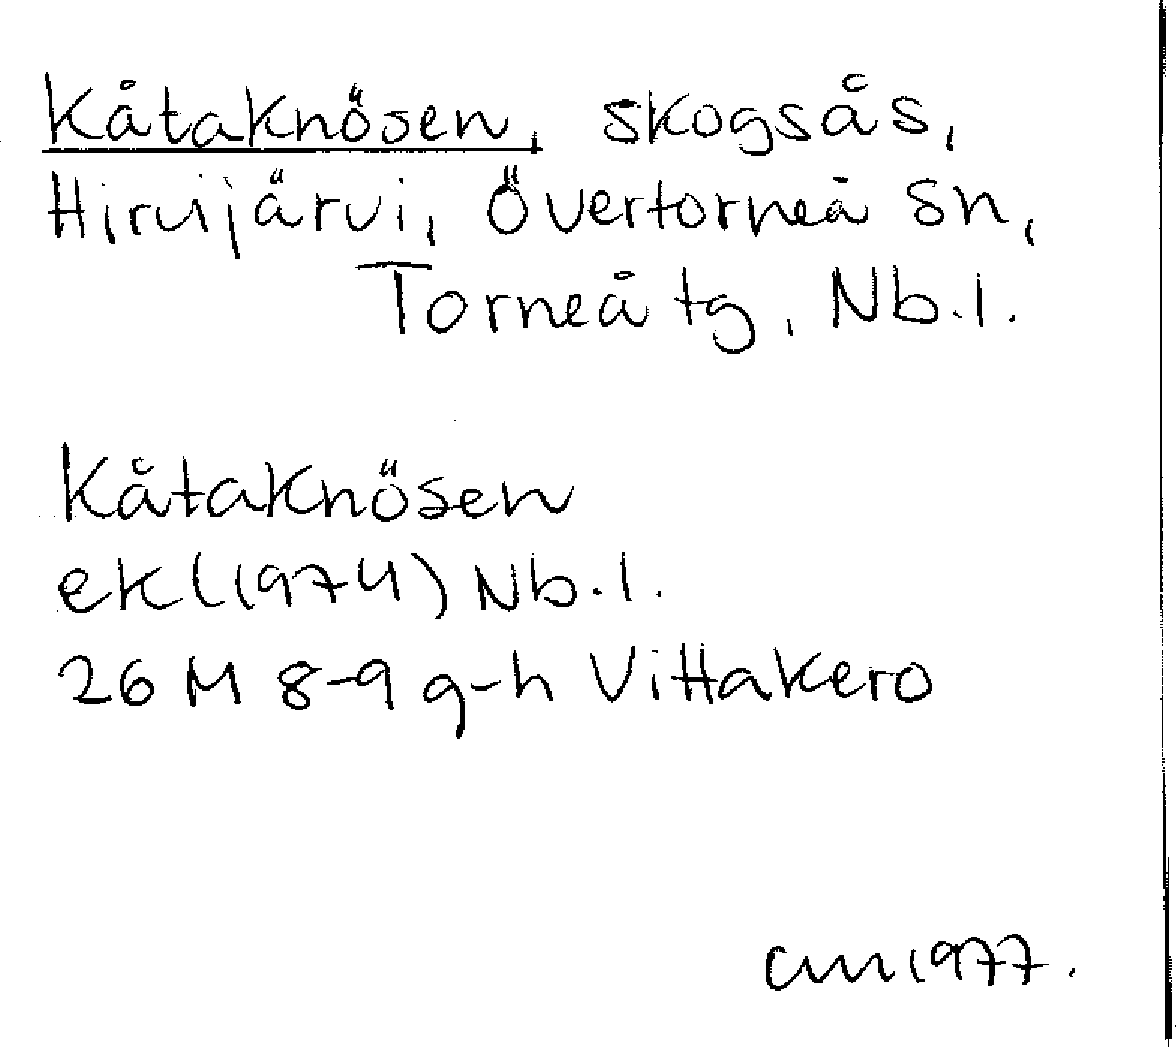 Kåtaknösen, skogsås,
Hirvijärvi, Övertorneå sn,
Torneå tg, Nb.l.
Kåtaknösen
ek (1974) Nb.l.
26 M 8-9 g-h Vittakero
cm 1977.